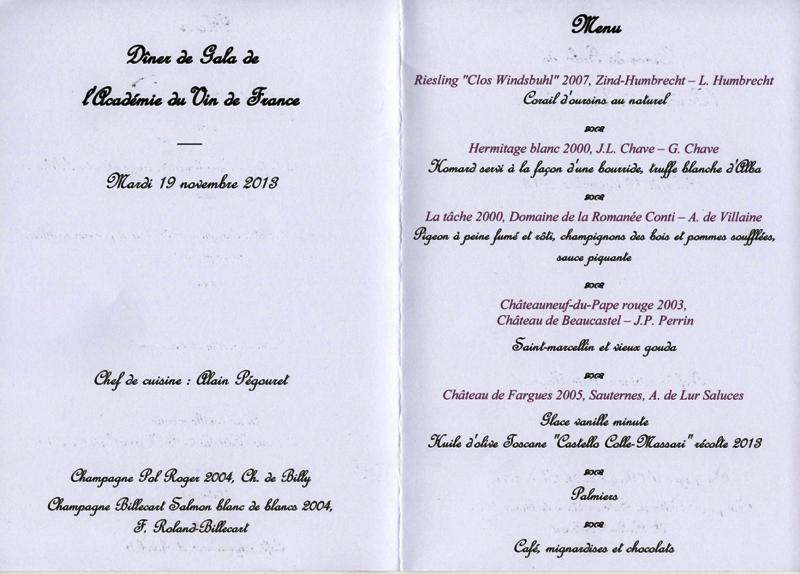 Dîner de Gala de
l'Académie du Vin de France
Mardi 19 novembre 2013
Chef de cuisine : Alain Pégouret
Champagne Pol Roger 2004, Ch. de Billy
Champagne Billecart Salmon blanc de blancs 2004,
F. Roland-Billecart
Menu
Riesling "Clos Windsbuhl" 2007, Zind-Humbrecht – L. Humbrecht
Corail d'oursins au naturel
Hermitage blanc 2000, J.L. Chave – G. Chave
Homard servi à la façon d'une bourride, truffe blanche d'Alba
La tâche 2000, Domaine de la Romanée Conti – A. de Villaine
Pigeon à peine fumé et rôti, champignons des bois et pommes soufflées,
sauce piquante
Châteauneuf-du-Pape rouge 2003,
Château de Beaucastel – J.P. Perrin
Saint-marcellin et vieux gouda
Château de Fargues 2005, Sauternes, A. de Lur Saluces
Glace vanille minute
Huile d'olive Toscane "Castello Colle-Massari" récolte 2013
Palmiers
Café, mignardises et chocolats